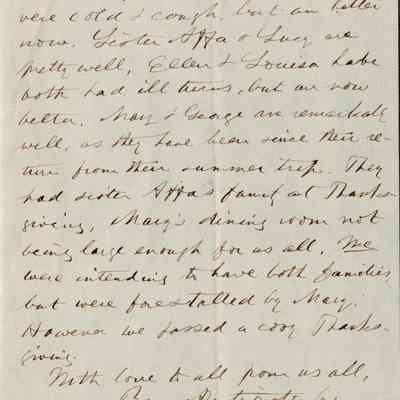 were cold & cough, but are better
now. Sister Affa & Lucy are
pretty well, Ellen & Louisa have
both had ill turns, but are now
better. Mary & George are remarkably
well, as they have been since their re-
turn from their summer trip. They
had sister Affa's family at Thanks-
giving, Mary's dining room not
being large enough for us all. We
were intending to have both families,
but were forestalled by Mary.
However we passed a cosy Thanks-
giving.
With love to all from us all,